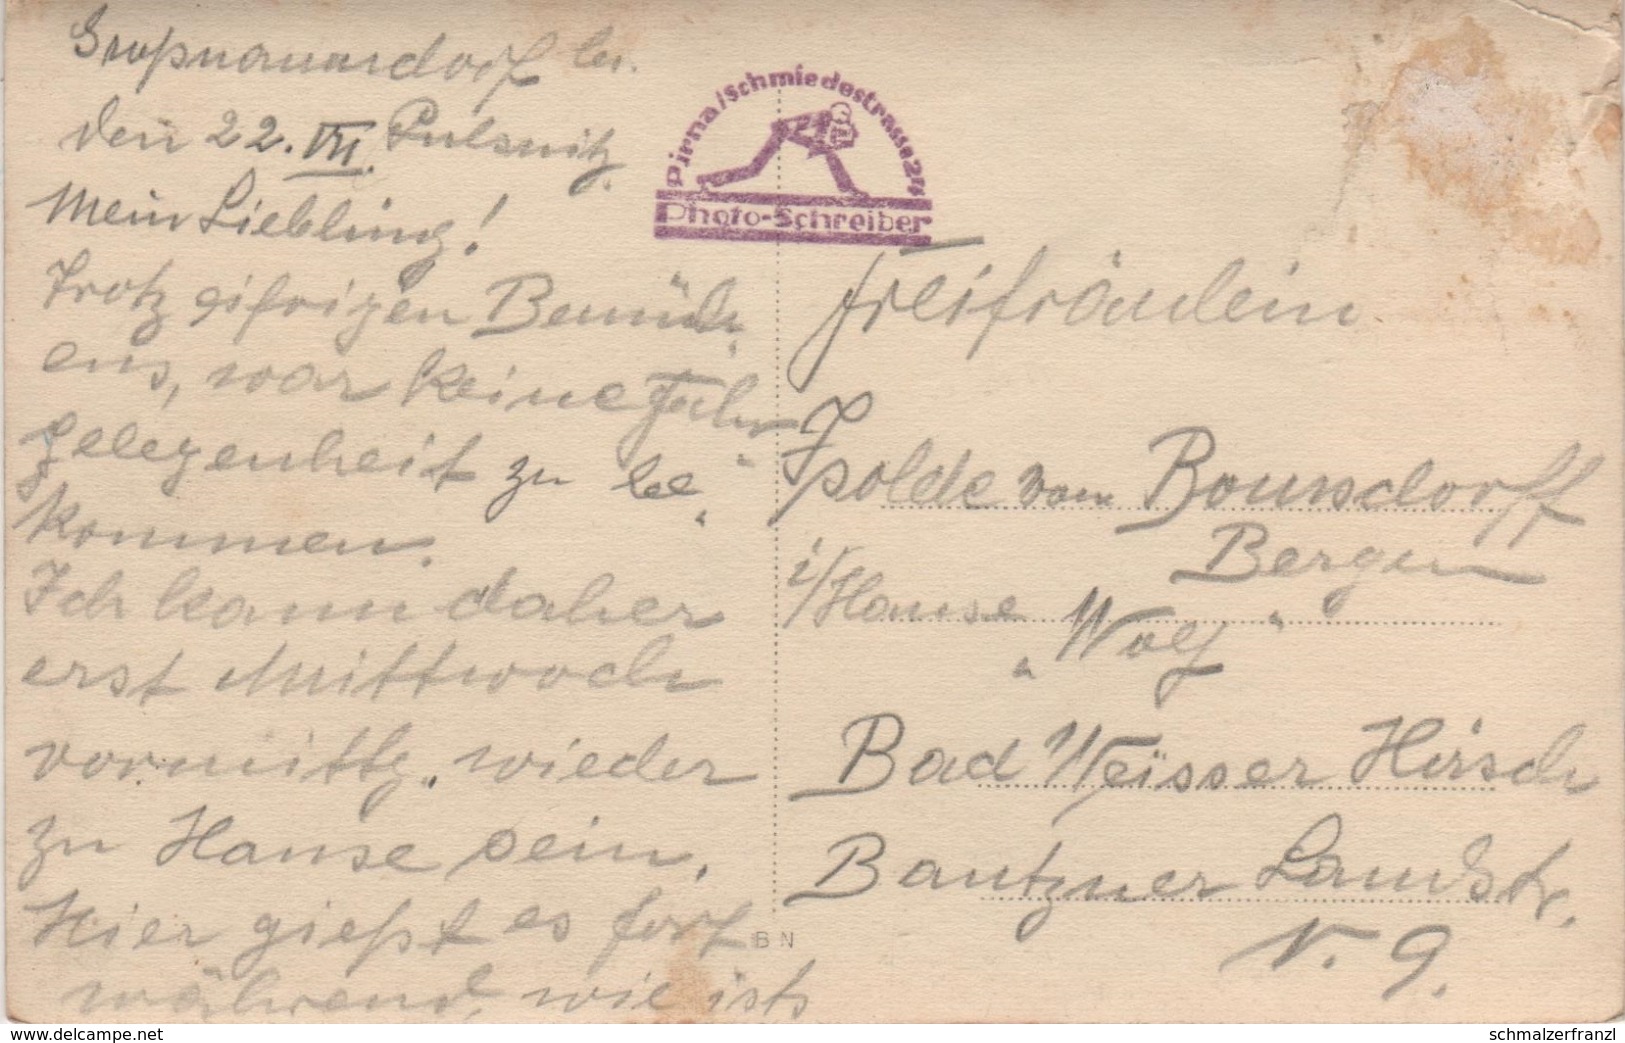 Großnaundorf bei
den 22. VII. Pulsnitz.
Mein Liebling!
Trotz eifrigen Bemüh„
ens, war keine Fahr„
gelegenheit zu be„
kommen.
Ich kann daher
erst Mittwoch
vormittg. wieder
zu Hause sein.
Hier gießt es fort
während, wie ists
Pirna/Schmiedestrasse 24
Photo-Schreiber
Freifräulein
Isolde von
Bergen
i/Hause
„Wolf“
Bad Weisser Hirsch
Bautzner Landstr.
N. 9.
BN
www.delcampe.net
schmalzerfranzl